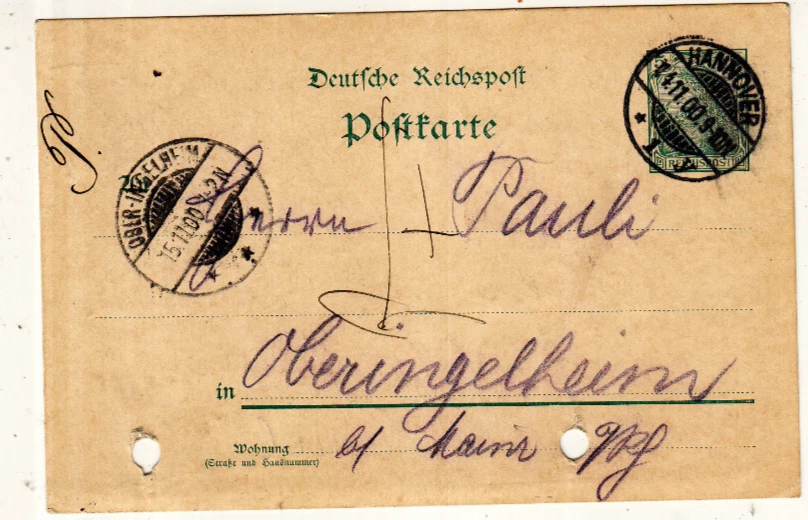 Deutsche Reichspost
Postkarte
HANNOVER
14.11.00. 9-10N
1
REICHSPOST
P.
OBER-INGELHEIM
15.11.00
Herrn Pauli
in Oberingelheim
Wohnung
(Straße und Hausnummer)
b/ Mainz